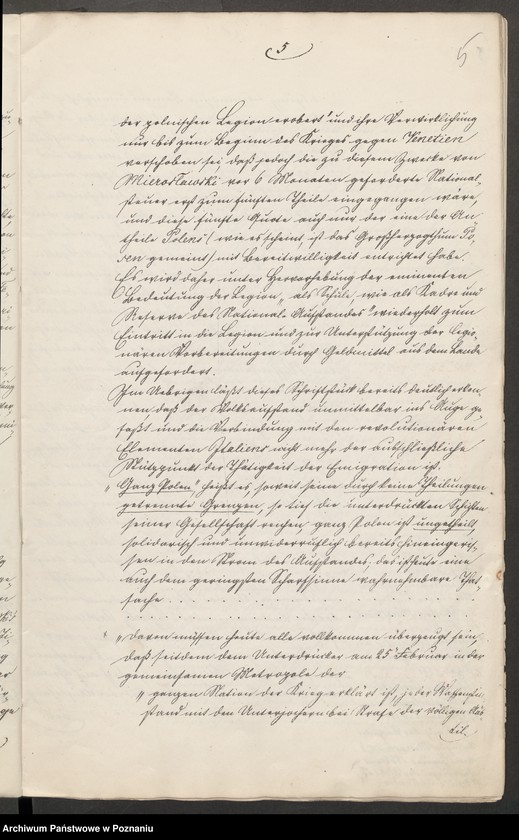 5
5
der polnischen Legion erobert" und ihre Verwirklichung
nur bis zum Beginn des Krieges gegen Venetien
verschoben sei, daß jedoch die zu diesem Zwecke von
Mierosławski vor 6 Monaten geforderte National-
steuer erst zum fünften Theile eingegangen wäre,
und diese fünfte Quote auch nur der eine der An-
theile Polens (wie es scheint, ist das Großherzogthum Po-
sen gemeint) mit Bereitwilligkeit entrichtet habe.
Es wird daher unter Hervorhebung der eminenten
Bedeutung der Legion „als Schule, wie als Kadre und
Reserve des National-Aufstandes" wiederholt zum
Eintritt in die Legion und zur Unterstützung der legio-
nären Vorbereitungen durch Geldmittel aus dem Lande
aufgefordert.
Im Uebrigen läßt dieses Schriftstück bereits deutlich erken-
nen, daß der Volksaufstand unmittelbar ins Auge ge-
faßt und die Verbindung mit den revolutionären
Elementen Italiens nicht mehr der ausschließliche
Stützpunkt der Thätigkeit der Emigration ist.
„Ganz Polen, heißt es, soweit seine durch keine Theilungen
getrennte Grenzen, so tief die unterdrückten Schichten
seiner Gesellschaft reichen, ganz Polen ist ungetheilt,
solidarisch und unwiderruflich bereits hineingeris-
sen in den Strom des Aufstandes; das ist heute eine
auch dem geringsten Scharfsinne wahrnehmbare That-
sache . . . . . . . . . .
. . . . . . . . . . . .
„davon müssen heute alle vollkommen überzeugt sein,
daß seitdem dem Unterdrücker am 25 Februar in der
gemeinsamen Metropole der
„ganzen Nation der Krieg erklärt ist, jeder Waffenstill-
stand mit den Unterjochern bei Strafe der völligen
Archiwum Państwowe w Poznaniu